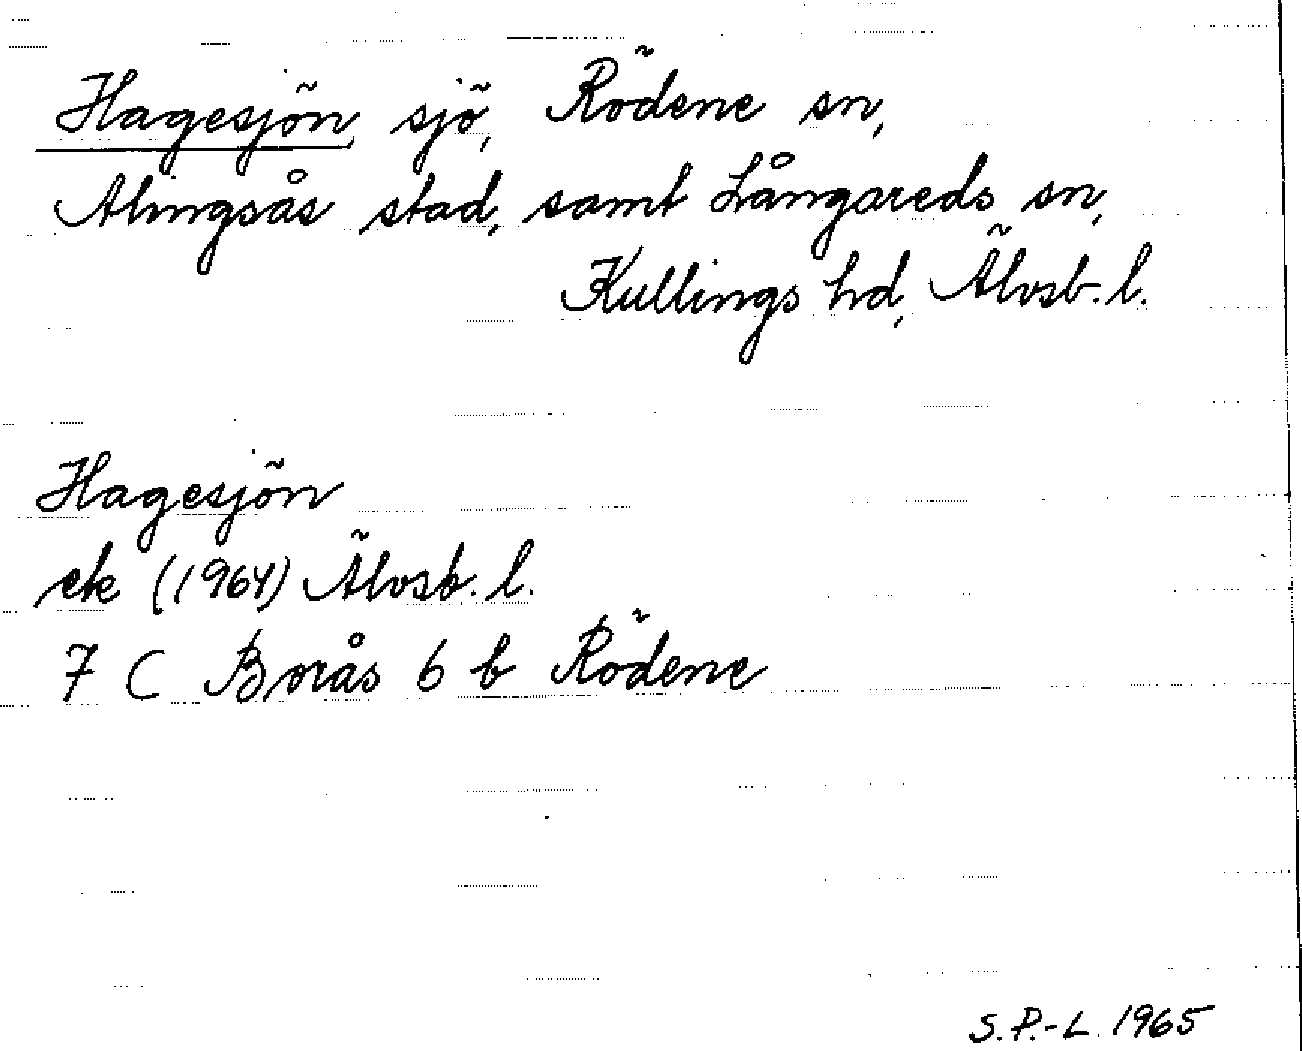 Hagesjön, sjö, Rödene sn,
Alingsås stad, samt Långareds sn,
Kullings hd, Älvsb. l.
Hagesjön
ek (1964) Älvsb. l.
7 C Borås 6 b Rödene
S.P.-L. 1965